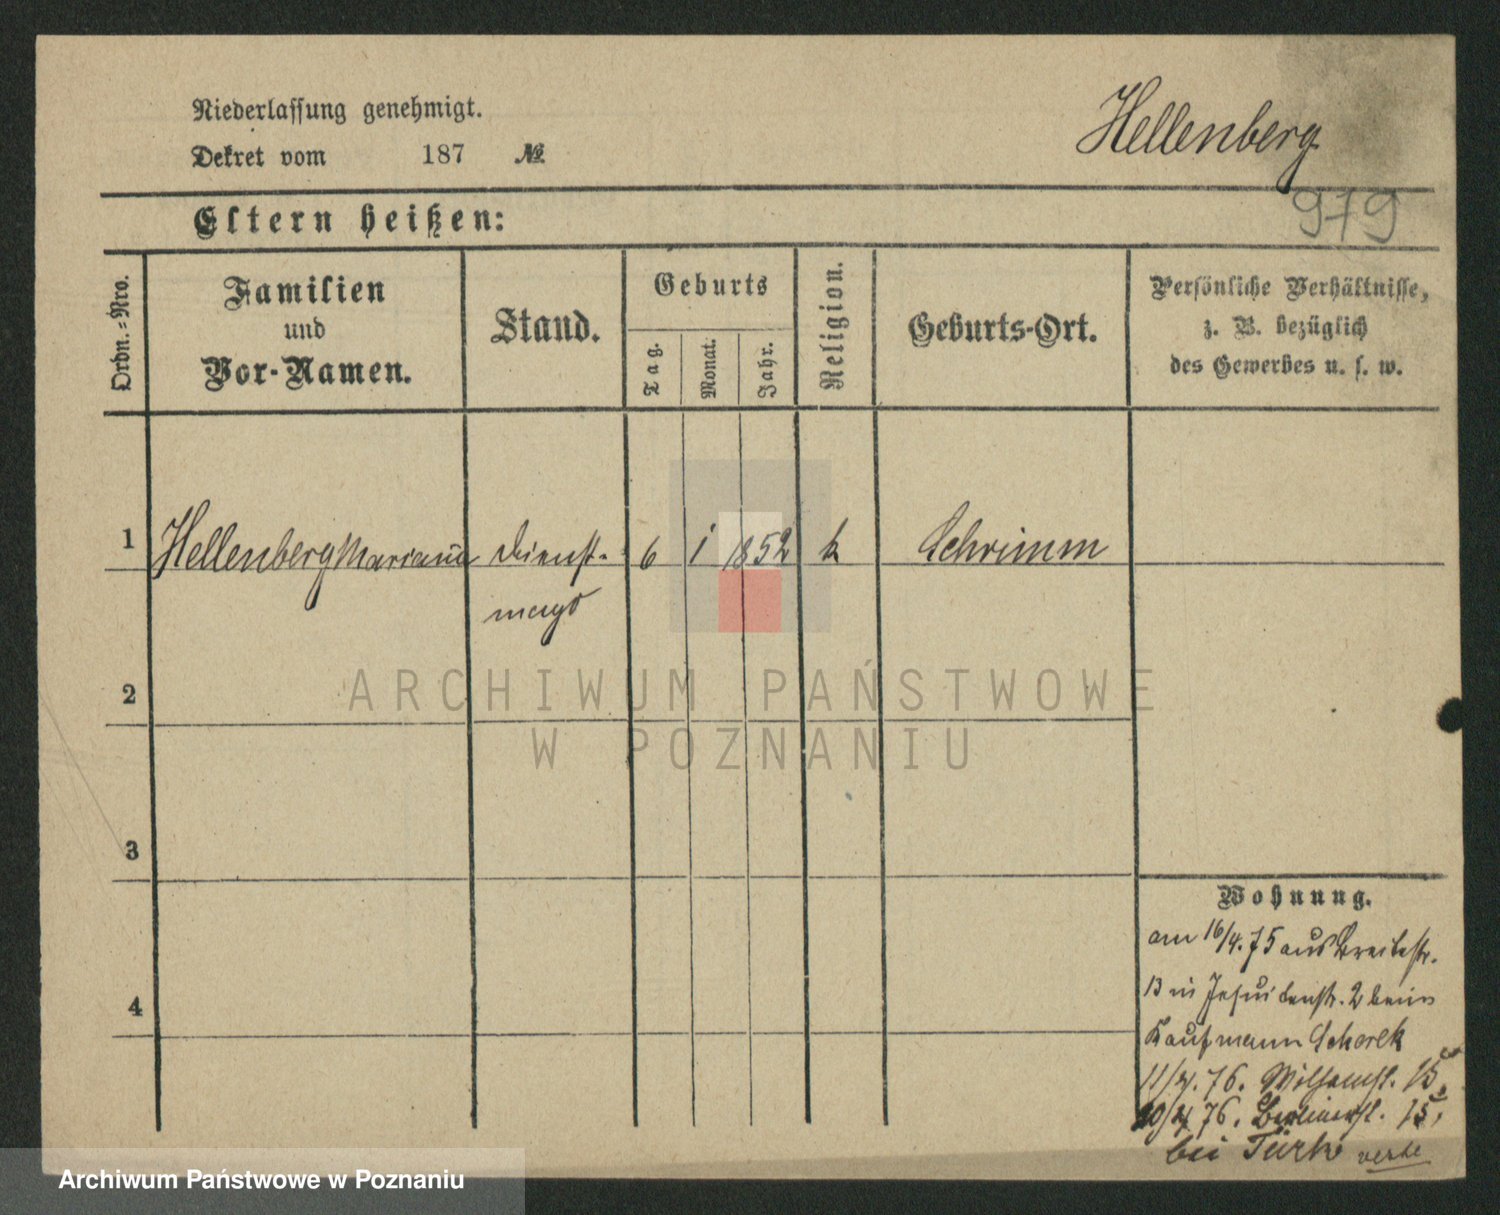 Niederlassung genehmigt.
Dekret vom 187 №
Hellenberg
979
Eltern heißen:
Ordn.-Nro.
Familien
und
Vor-Namen.
Stand.
Geburts
Tag.
Monat.
Jahr.
Religion.
Geburts-Ort.
Persönliche Verhältnisse,
z. B. bezüglich
des Gewerbes u. s. w.
1 Hellenberg Marianna Dienst- 6 1 1852 k Schrimm
magd
2
3
4
ARCHIWUM PAŃSTWOWE
W POZNANIU
Wohnung.
am 16/4.75 aus Breitestr.
13 in Jesuitenstr. 2 beim
Kaufmann Schorek
11/4.76. Wilhelmst. 15,
20/4 76. Berlinerst. 15,
bei Türk
Archiwum Państwowe w Poznaniu